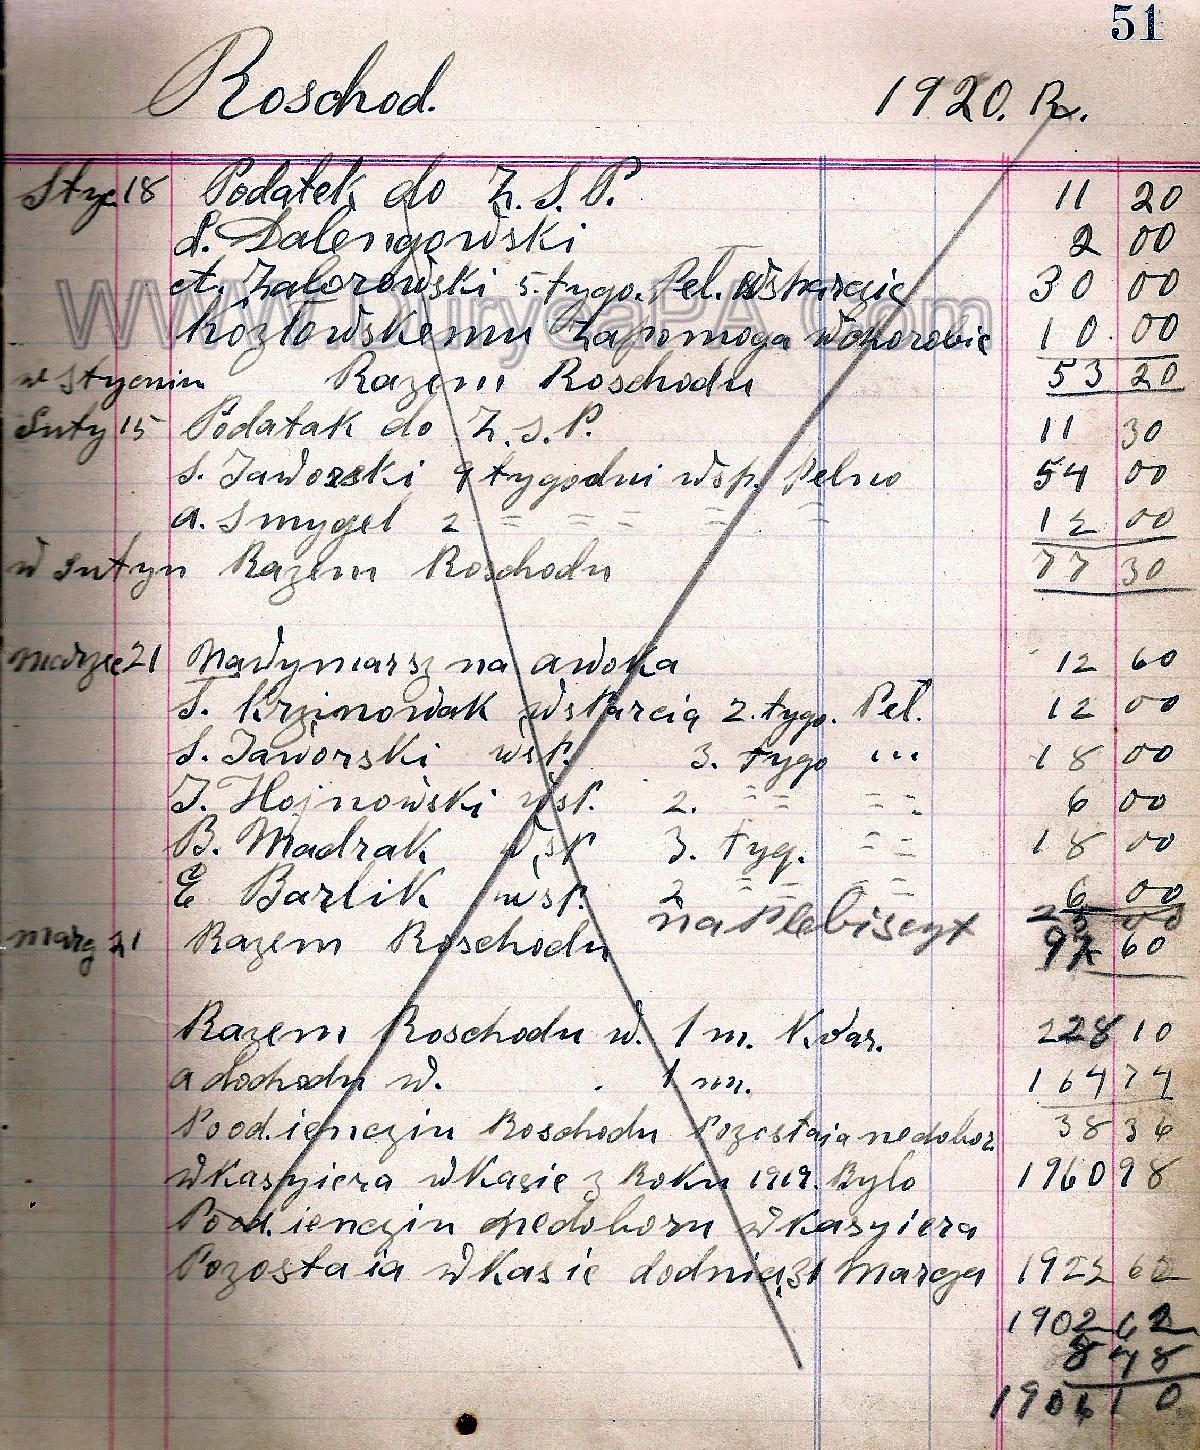 51
Roschod. 1920. R.
Stycz 18 Podatek do Z. S. P. 11 20
S. Dalengowski 2 00
A. Zaborowski 5. tygo. Peł. Wsparcie 30 00
www.DuryeaPA.com
Kozłowskemu Zapomoga w Chorobie 10.00
w Stycniu Razem Roschodu 53 20
Luty 15 Podatak do Z. S. P. 11 30
S. Jaworski 9 tygodni wsp. Pelno 54 00
A. Smygel 2 = = = = = 12 00
w Lutyn Razem Roschodu 77 30
Marzec 21 na 12 60
S. Krzinowak Wsparcią 2. tygo. Peł. 12 00
S. Jaworski wsp. 3. tygo " 18 00
J. Hojnowski wsp. 2. = = = = 6 00
B. Madrak Wsp 3. tyg. = = 18 00
E Barlik wsp. 2 = = = = 6 00
na Plebiscyt 25 00
Marz 21 Razem Roschodu 97 60
Razem Roschodu w. 1 m. Kwar. 228 10
a dochodu w. 1 m. 164 74
Pood.ienczin Roschodu Pozostaia nedobor. 38 36
w Kasyiera w Kasie z Roku 1919. Bylo 1960 98
Pood.ienczin nedoboru w Kasyiera
Pozostaia w Kasie dodnią 31 Marca 1922 62
1902 62
8 48
190 1 0